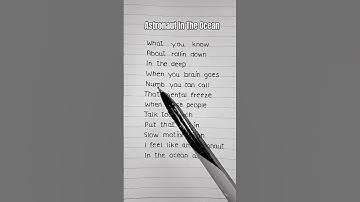 Astronaut In The Ocean
What you know
About rollin down
In the deep
When you brain goes
Numb you can call
That mental freeze
When people
Talk
Put that
Slow
I feel like an
In the ocean